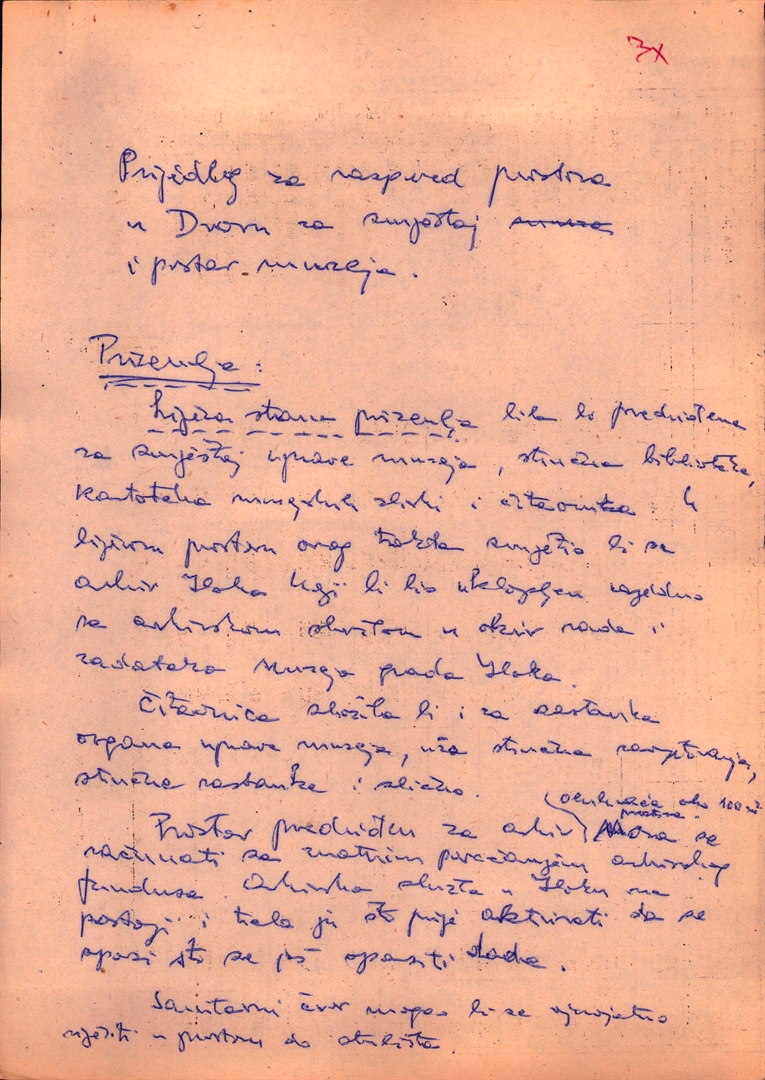 3x
Prijedlog za raspored prostora
u Dvoru za smještaj
i postav muzeja.
Prizemlje:
Lijeva strana prizemlja bila bi predviđena
za smještaj uprave muzeja, stručna biblioteka,
kartoteka muzejskih zbirki i čitaonica. U
lijevom prostoru ovog trakta smjestio bi se
arhiv Iloka koji bi bio uklopljen zajedno
sa arhivskom službom u okvir rada i
zadataka Muzeja grada Iloka.
Čitaonica služila bi i za sastanke
organa uprave muzeja, uža stručna savjetovanja,
stručne sastanke i slično.
(obuhvaća oko 100 m²
prostora.
Prostor predviđen za arhiv) Mora se
računati sa znatnim povećanjem arhivskog
fundusa. Arhivska služba u Iloku ne
postoji i treba ju što prije aktivirati da se
spasi što se još spasiti dade.
Sanitarni čvor mogao bi se vjerojatno
riješiti u prostoru do stubišta.